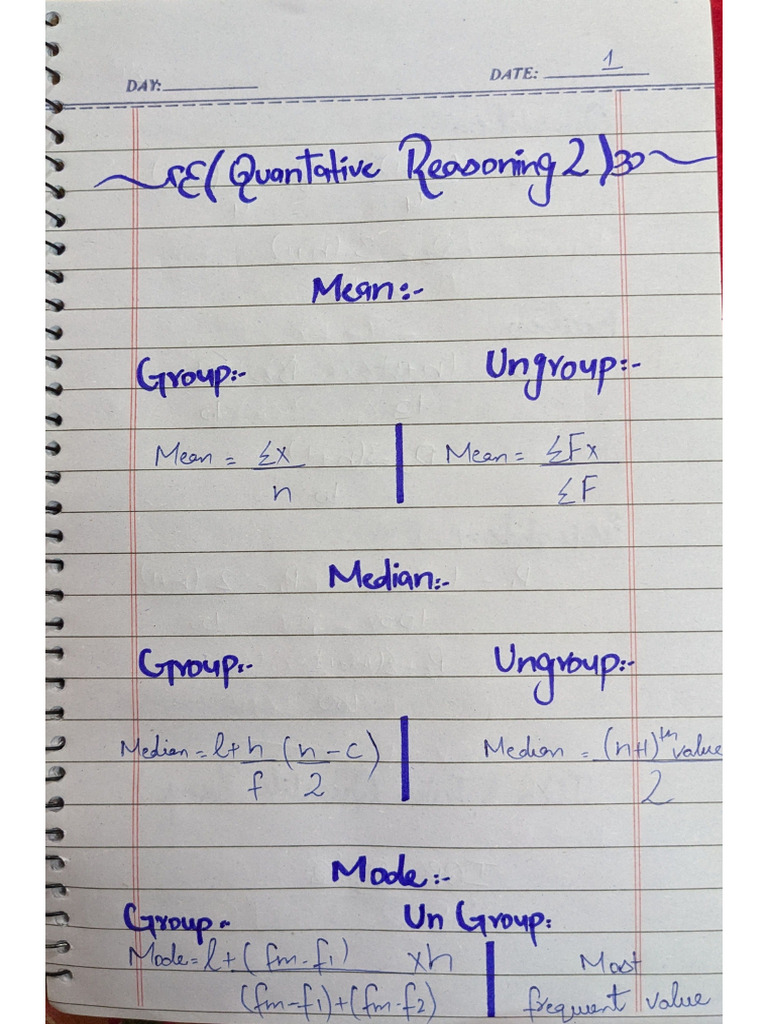 DAY: DATE: 1
(Quantative Reasoning 2)
Mean:-
Group:- Ungroup:-
Mean = Σx / n Mean = ΣFx / ΣF
Median:-
Group:- Ungroup:-
Median = l + h/f (n/2 - c) Median = (n+1)th value / 2
Mode:-
Group- Un Group:
Mode = l + (fm-f1) / (fm-f1)+(fm-f2) xh Most
frequent value